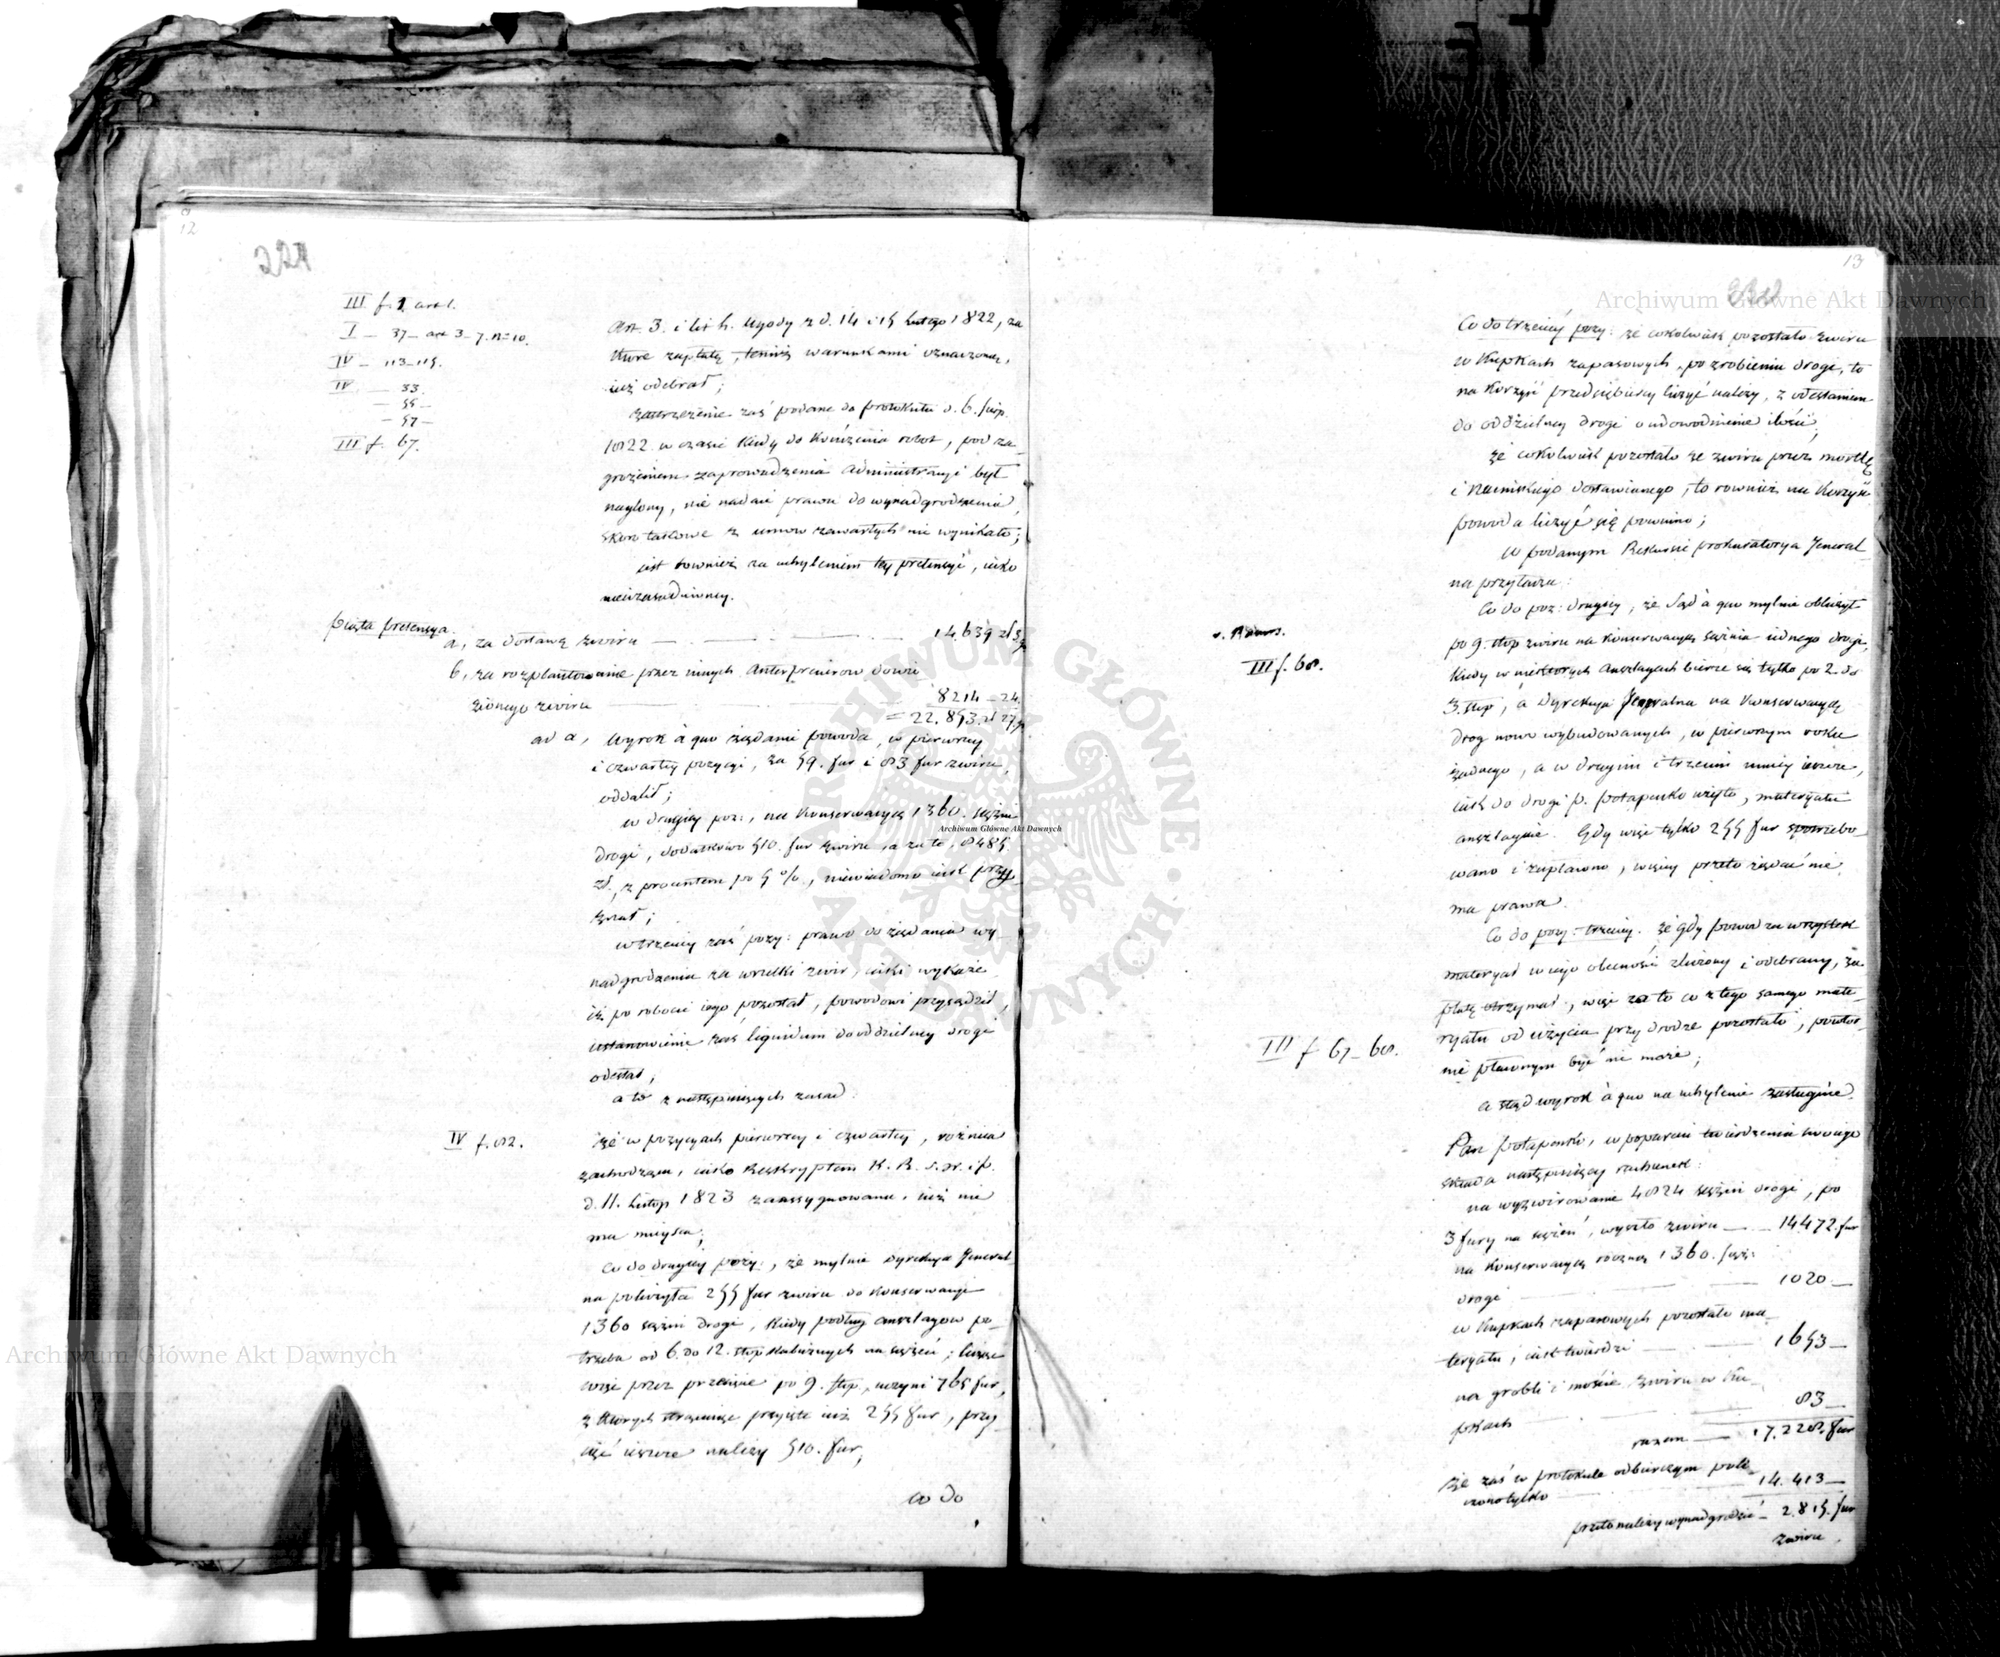 12
224
III f. 1 art 1.
I _ 37_ art 3_7. n=10.
IV _ 113_115.
IV _ 33.
_ 55_
_ 57_
III f. 67.
Art. 3. i lit h. Ugody z d. 14 i 15 Lutego 1822, za
które zapłatę, temiż warunkami oznaczoną,
iuż odebrał;
zastrzeżenie zaś podane do protokułu d. 6. Sierp.
1822 w czasie kiedy do kończenia robot, pod za-
grożeniem zaprowadzenia Administracyi był
naglony, nie nadaie prawa do wynadgrodzenia,
skoro takowe z umow zawartych nie wynikało;
iest rownież za uchyleniem tey pretensyi, iako
nieuzasadnioney.
Piąta pretensya.
a, za dostawę żwiru _ _ _ 14639 zł 3
b, za rozplantowanie przez innych Anterprenerow dowie
zionego żwiru _ _ 8214_24.
= 22.853 zł 27
ad a, Wyrok à quo żądanie powoda, w pierwszey
i czwartey pozycyi, za 59. fur i 83 fur żwiru,
oddalił;
w drugiey poz:, na konserwacyą 1360. sążni
drogi, dodatkowo 510. fur żwiru, a za to, 8485
zł, z procentem po 5 %, niewiadomo iak przy-
znał;
w trzeciey zaś pozy: prawo do żądania wy-
nadgrodzenia za wszelki żwir, iaki wykaże
iż po robocie iego pozostał, powodowi przysądził,
ustanowienie zaś liquidum do oddzielney drogi
odesłał;
a to z następuiących zasad:
IV f. 82.
że w pozycyach pierwszey i czwartey, rożnica
zachodząca, iako Reskryptem K. R. S. W. i P.
d. 11. Listop 1823 zaassygnowana, iuż nie
ma mieysca;
co do drugiey pozy:, że mylnie Dyrekcya Jeneral
na policzyła 255 fur żwiru do konserwacyi
1360 sążni drogi, kiedy podług anszlagow po-
trzeba od 6. do 12. stop kubicznych na sążeń; licząc
więc przez przecięcie po 9. stop, uczyni 765 fur,
z których strąciwszy przyięte iuż 255 fur, przy-
iąć ieszcze należy 510. fur;
co do
13
Co do trzeciey pozy: że cokolwiek pozostało żwiru
w kupkach zapasowych, po zrobieniu drogi, to
na korzyść przedsiębiercy liczyć należy, z odesłaniem
do oddzielney drogi o udowodnienie ilości;
że cokolwiek pozostało ze żwiru przez
i dostawionego, to rownież na korzyść
powoda liczyć się powinno;
W podanym Rekursie Prokuratorya Jeneral
na przytacza:
v. Rekurs.
III f. 68.
Co do poz: drugiey, że Sąd à quo mylnie obliczył
po 9. stop żwiru na konserwacyą sążnia iednego drogi,
kiedy w niektorych anszlagach bierze się tylko po 2. do
3. stop, a Dyrekcya Jeneralna na konserwacyą
drog nowo wybudowanych, w pierwszym roku
żadnego, a w drugim i trzecim mniey ieszcze,
iak do drogi P. Potapenko użyto, materyału
anszlaguie. Gdy więc tylko 255 fur spotrzebo-
wano i zapłacono, więcey przeto żądać nie
ma prawa.
III f 67_68.
Co do pozy: trzeciey. że gdy powod za wszystek
materyał w iego obecności zliczony i odebrany, za-
płatę otrzymał, więc za to co z tego samego mate-
ryału od użycia przy drodze pozostało, powtor-
nie płaconym być nie może;
a ztąd wyrok à quo na uchylenie zasługuie.
Pan Potapenko, w poparciu twierdzenia swoiego
składa następuiący rachunek:
na wyżwirowanie 4824 sążni drogi, po
3 fury na sążeń, wyszło żwiru _ _ 14472. fur
na konserwacyą roczną 1360. sąż:
drogi _ _ _ 1020_
w kupkach zapasowych pozostało ma-
teryału, iak twierdzi _ _ 1653_
na grobli i moście żwiru w ku-
pkach _ _ 83_
razem _ 17.228. fur
że zaś w protokule odbiorczym poli-
czono tylko _ _ 14.413_
przeto należy wynadgrodzić _ 2.815. fur
żwiru.
Archiwum Główne Akt Dawnych
Archiwum Główne Akt Dawnych
Archiwum Główne Akt Dawnych
ARCHIWUM GŁÓWNE AKT DAWNYCH